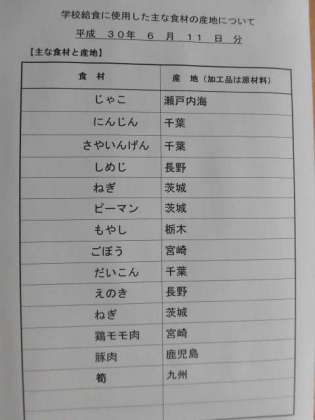 学校給食に使用した主な食材の産地について
平成 30年 6 月 11 日 分
【主な食材と産地】
食 材 産 地（加工品は原材料）
じゃこ 瀬戸内海
にんじん 千葉
さやいんげん 千葉
しめじ 長野
ねぎ 茨城
ピーマン 茨城
もやし 栃木
ごぼう 宮崎
だいこん 千葉
えのき 長野
ねぎ 茨城
鶏モモ肉 宮崎
豚肉 鹿児島
筍 九州